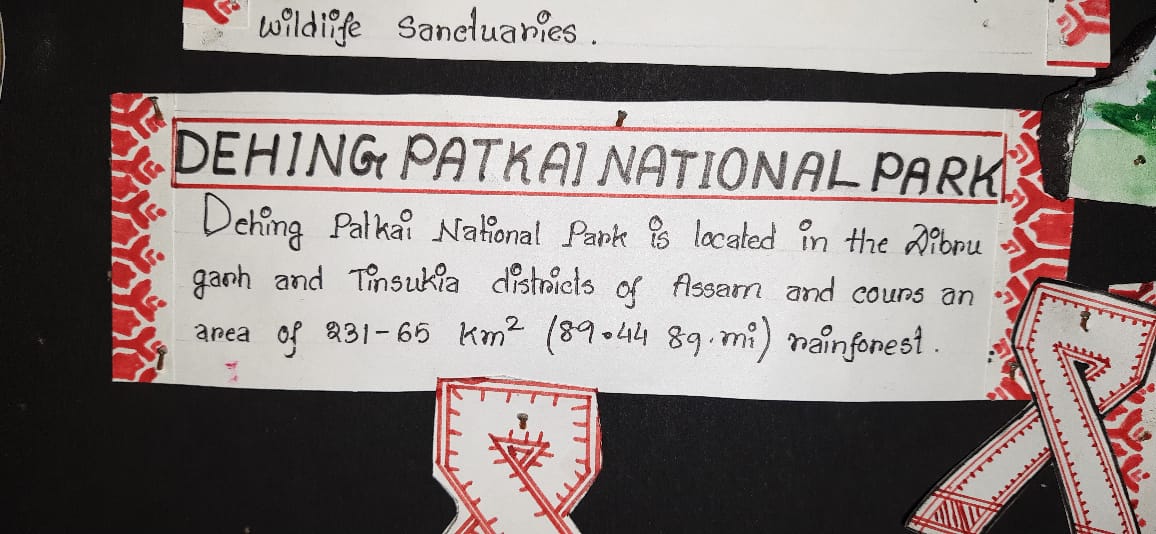 wildlife Sanctuaries.
DEHING PATKAI NATIONAL PARK
Dehing Patkai National Park is located in the Dibru
garh and Tinsukia districts of Assam and cours an
area of 231-65 km² (89.44 89.mi) rainforest.